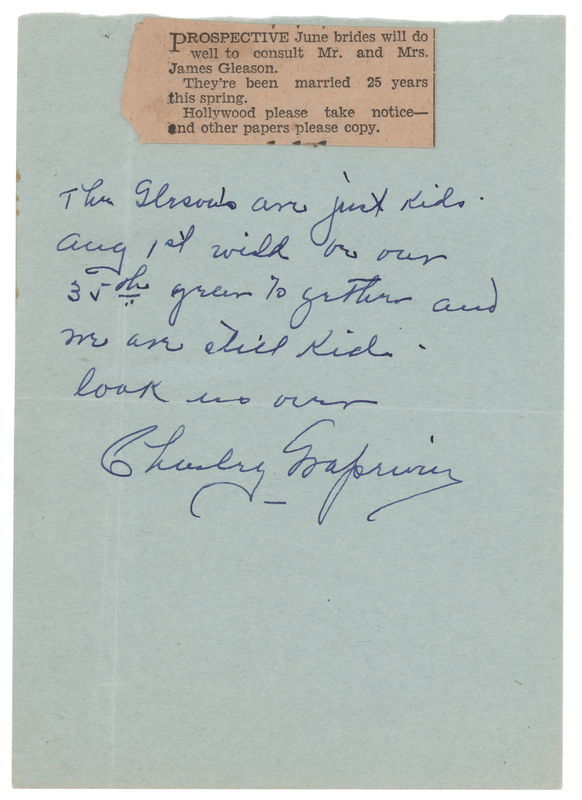 PROSPECTIVE June brides will do
well to consult Mr. and Mrs.
James Gleason.
They're been married 25 years
this spring.
Hollywood please take notice—
and other papers please copy.
The Gleasons are just Kids.
Aug 1st will be our
35th year together and
we are still Kids.
look us over
Charley Grapewin